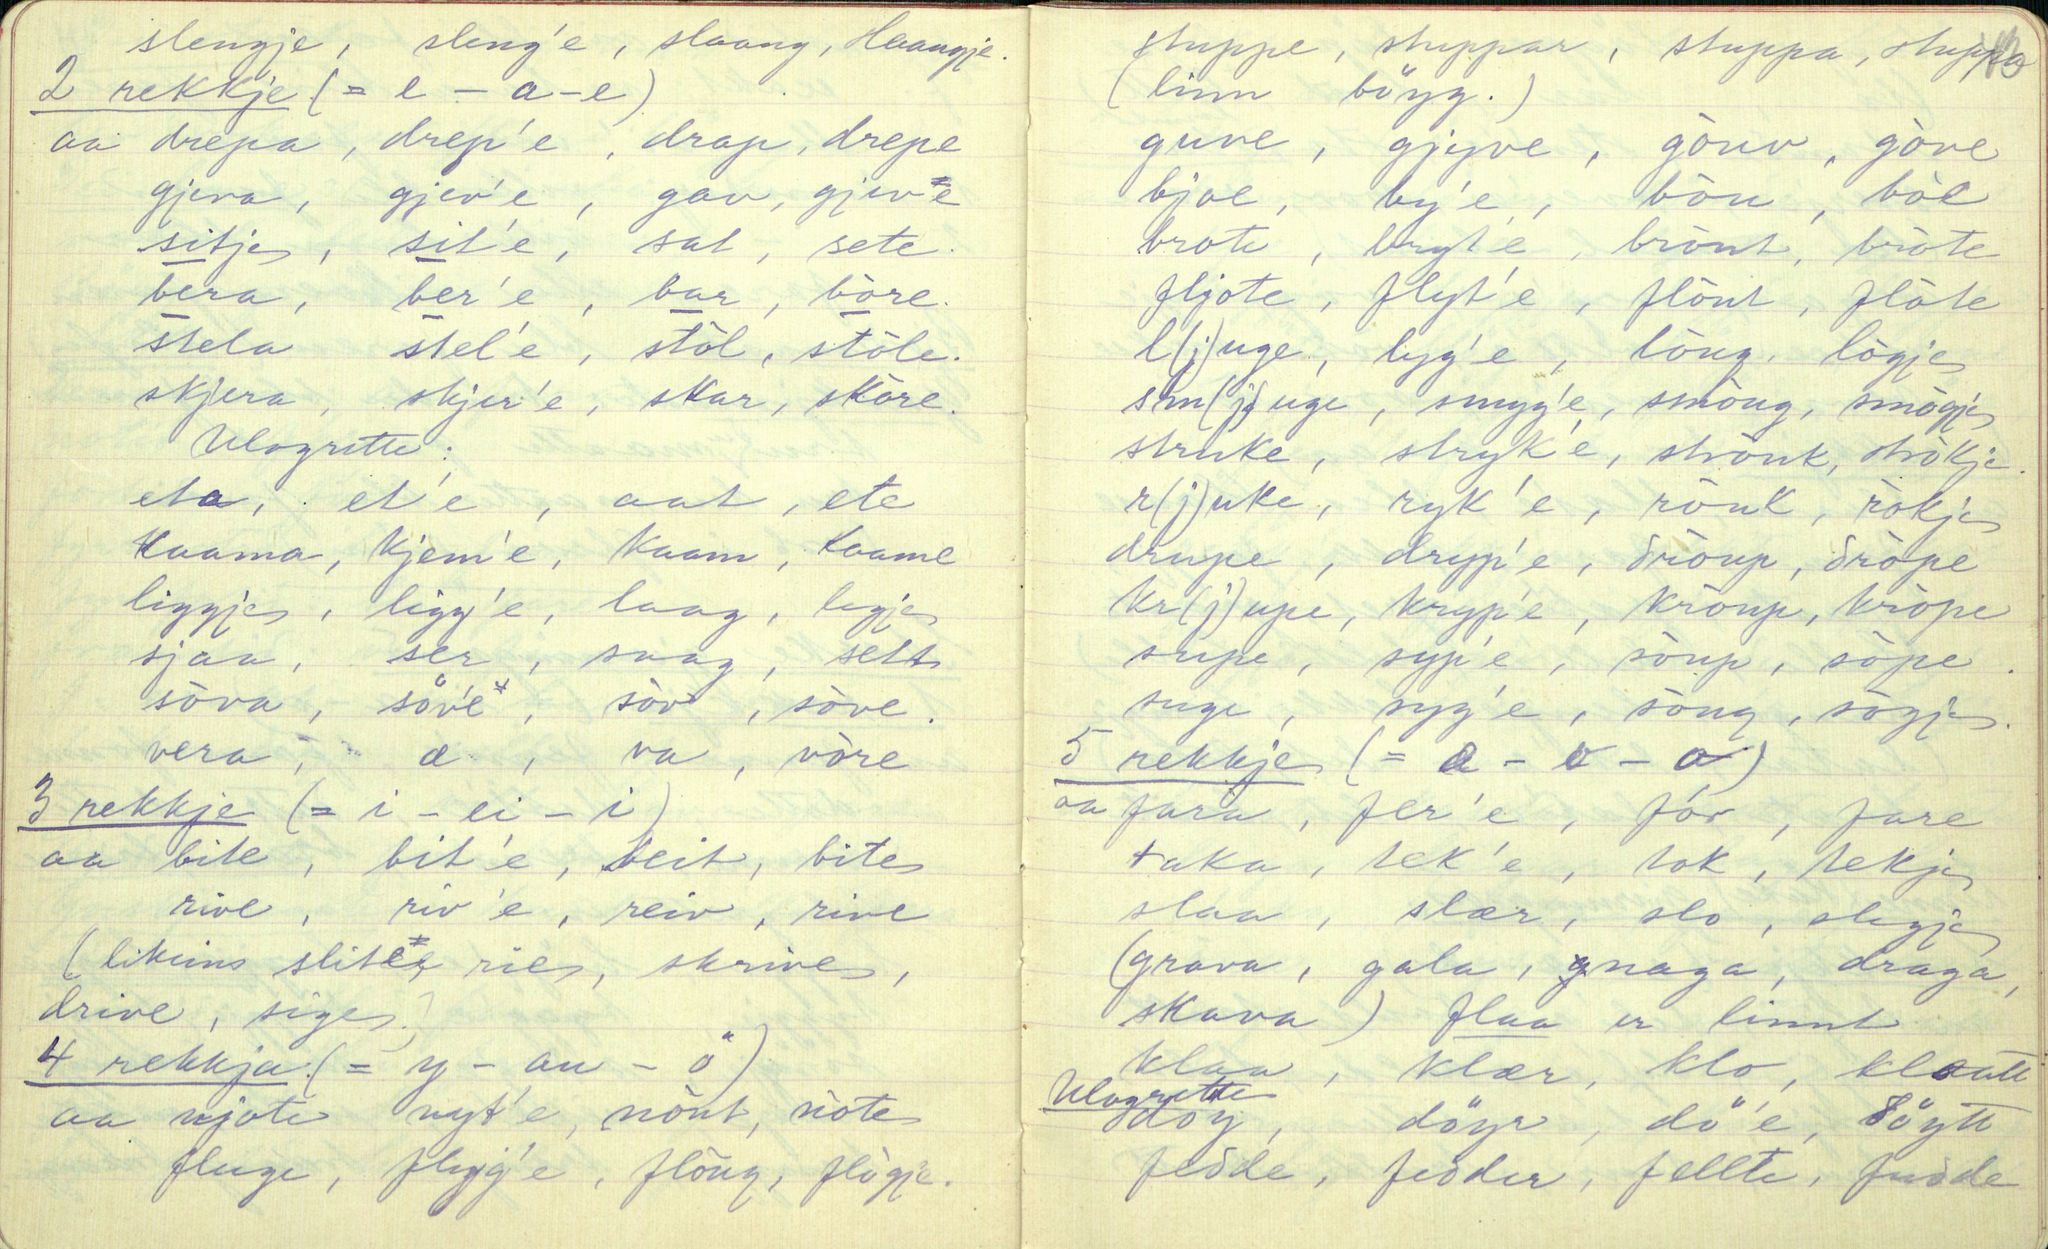 slengje, sleng'e, slaang, slaangje.
2 rekkje (= e - a - e)
aa drepa, drep'e, drap, drepe
gjeva, gjev'e, gav, gjeve
sitje, sit'e, sat, sete.
bera, ber'e, bar, bòre.
stela stel'e, stòl, stòle.
skjera, skjer'e, skar, skòre.
Ulogrette:
eta, et'e, aat, ete
kaama, kjem'e, kaam, kaame
liggje, ligg'e, laag, legje
sjaa, ser, saag, sett
sòva, söv'e, sòv, sòve.
vera, æ, va, vòre
3 rekkje (= i - ei - i)
aa bite, bit'e, beit, bite
rive, riv'e, reiv, rive
(likeins slite, rie, skrive,
drive, sige)
4 rekkja (= y - au - ö)
aa njote nyt'e, nòut, nòte
fluge, flyg'e, flòug, flògje.
stuppe, stuppar, stuppa, stuppa
(linn böyg.)
guve, gjyve, gòuv, gòve
bjoe, by'e, bòu, bòe
brote, bryt'e, bròut, bròte
fljote, flyt'e, flòut, flòte
l(j)uge, lyg'e, lòug, lògje
sm(j)uge, smyg'e, smòug, smògje
struke, stryk'e, stròuk, stròkje.
r(j)uke, ryk'e, ròuk, ròkje
drupe, dryp'e, dròup, dròpe
kr(j)upe, kryp'e, kròup, kròpe
supe, syp'e, sòup, sòpe.
suge, syg'e, sòug, sògje.
5 rekkje (= a - o - a)
aa fara, fer'e, fór, fare
taka, tek'e, tok, tekje
slaa, slær, slo, slegje
(grava, gala, gnaga, draga,
skava) flaa er linnt
klaa, klær, klo, klaatt
Ulogrette
döy, döyr, dö'e, döytt
fedde, fedder, fellte, fudde